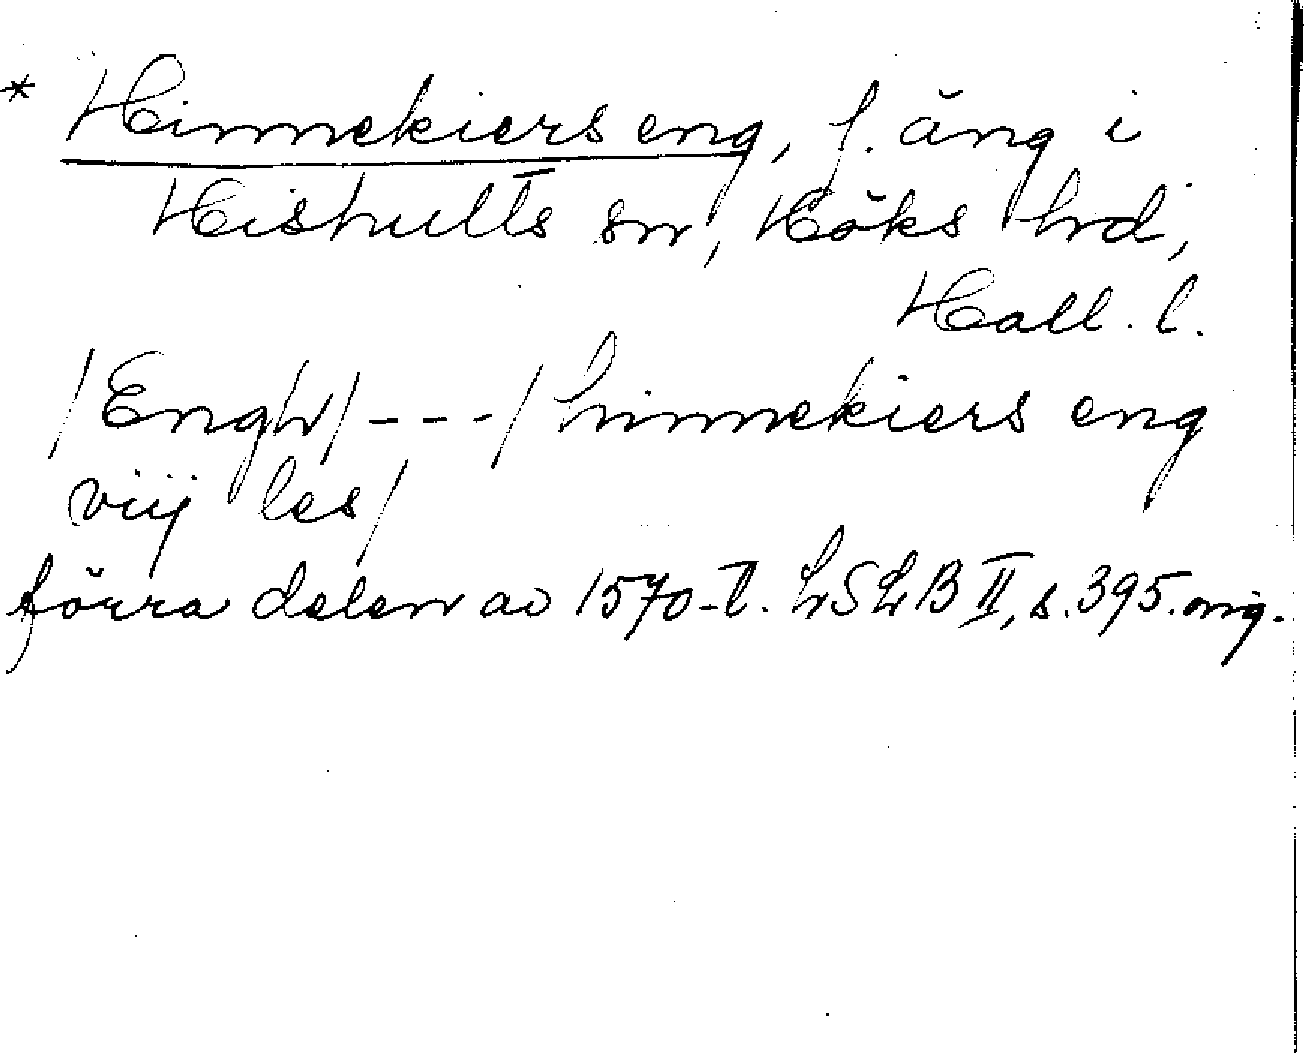 * Hinnekiers eng, f. äng i
Hishults sn, Höks hrd,
Hall. l.
/Engh/---/hinnekiers eng
viij les/
förra delen av 1570-t. LSLB II, s. 395. orig.